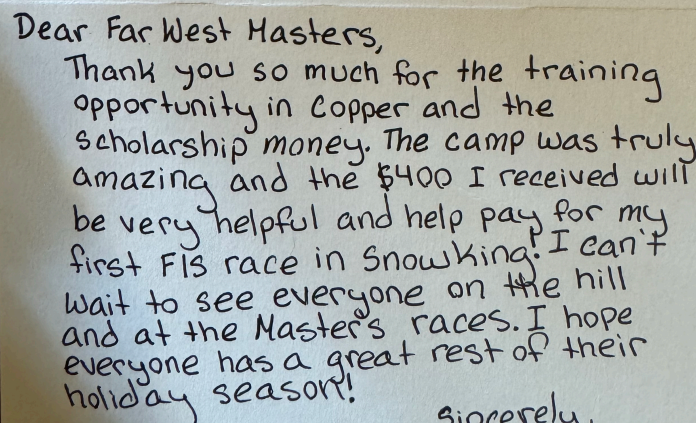 Dear Far West Masters,
Thank you so much for the training
opportunity in Copper and the
scholarship money. The camp was truly
amazing and the $400 I received will
be very helpful and help pay for my
first FIS race in Snowking! I can't
wait to see everyone on the hill
and at the Master's races. I hope
everyone has a great rest of their
holiday season!
Sincerely,